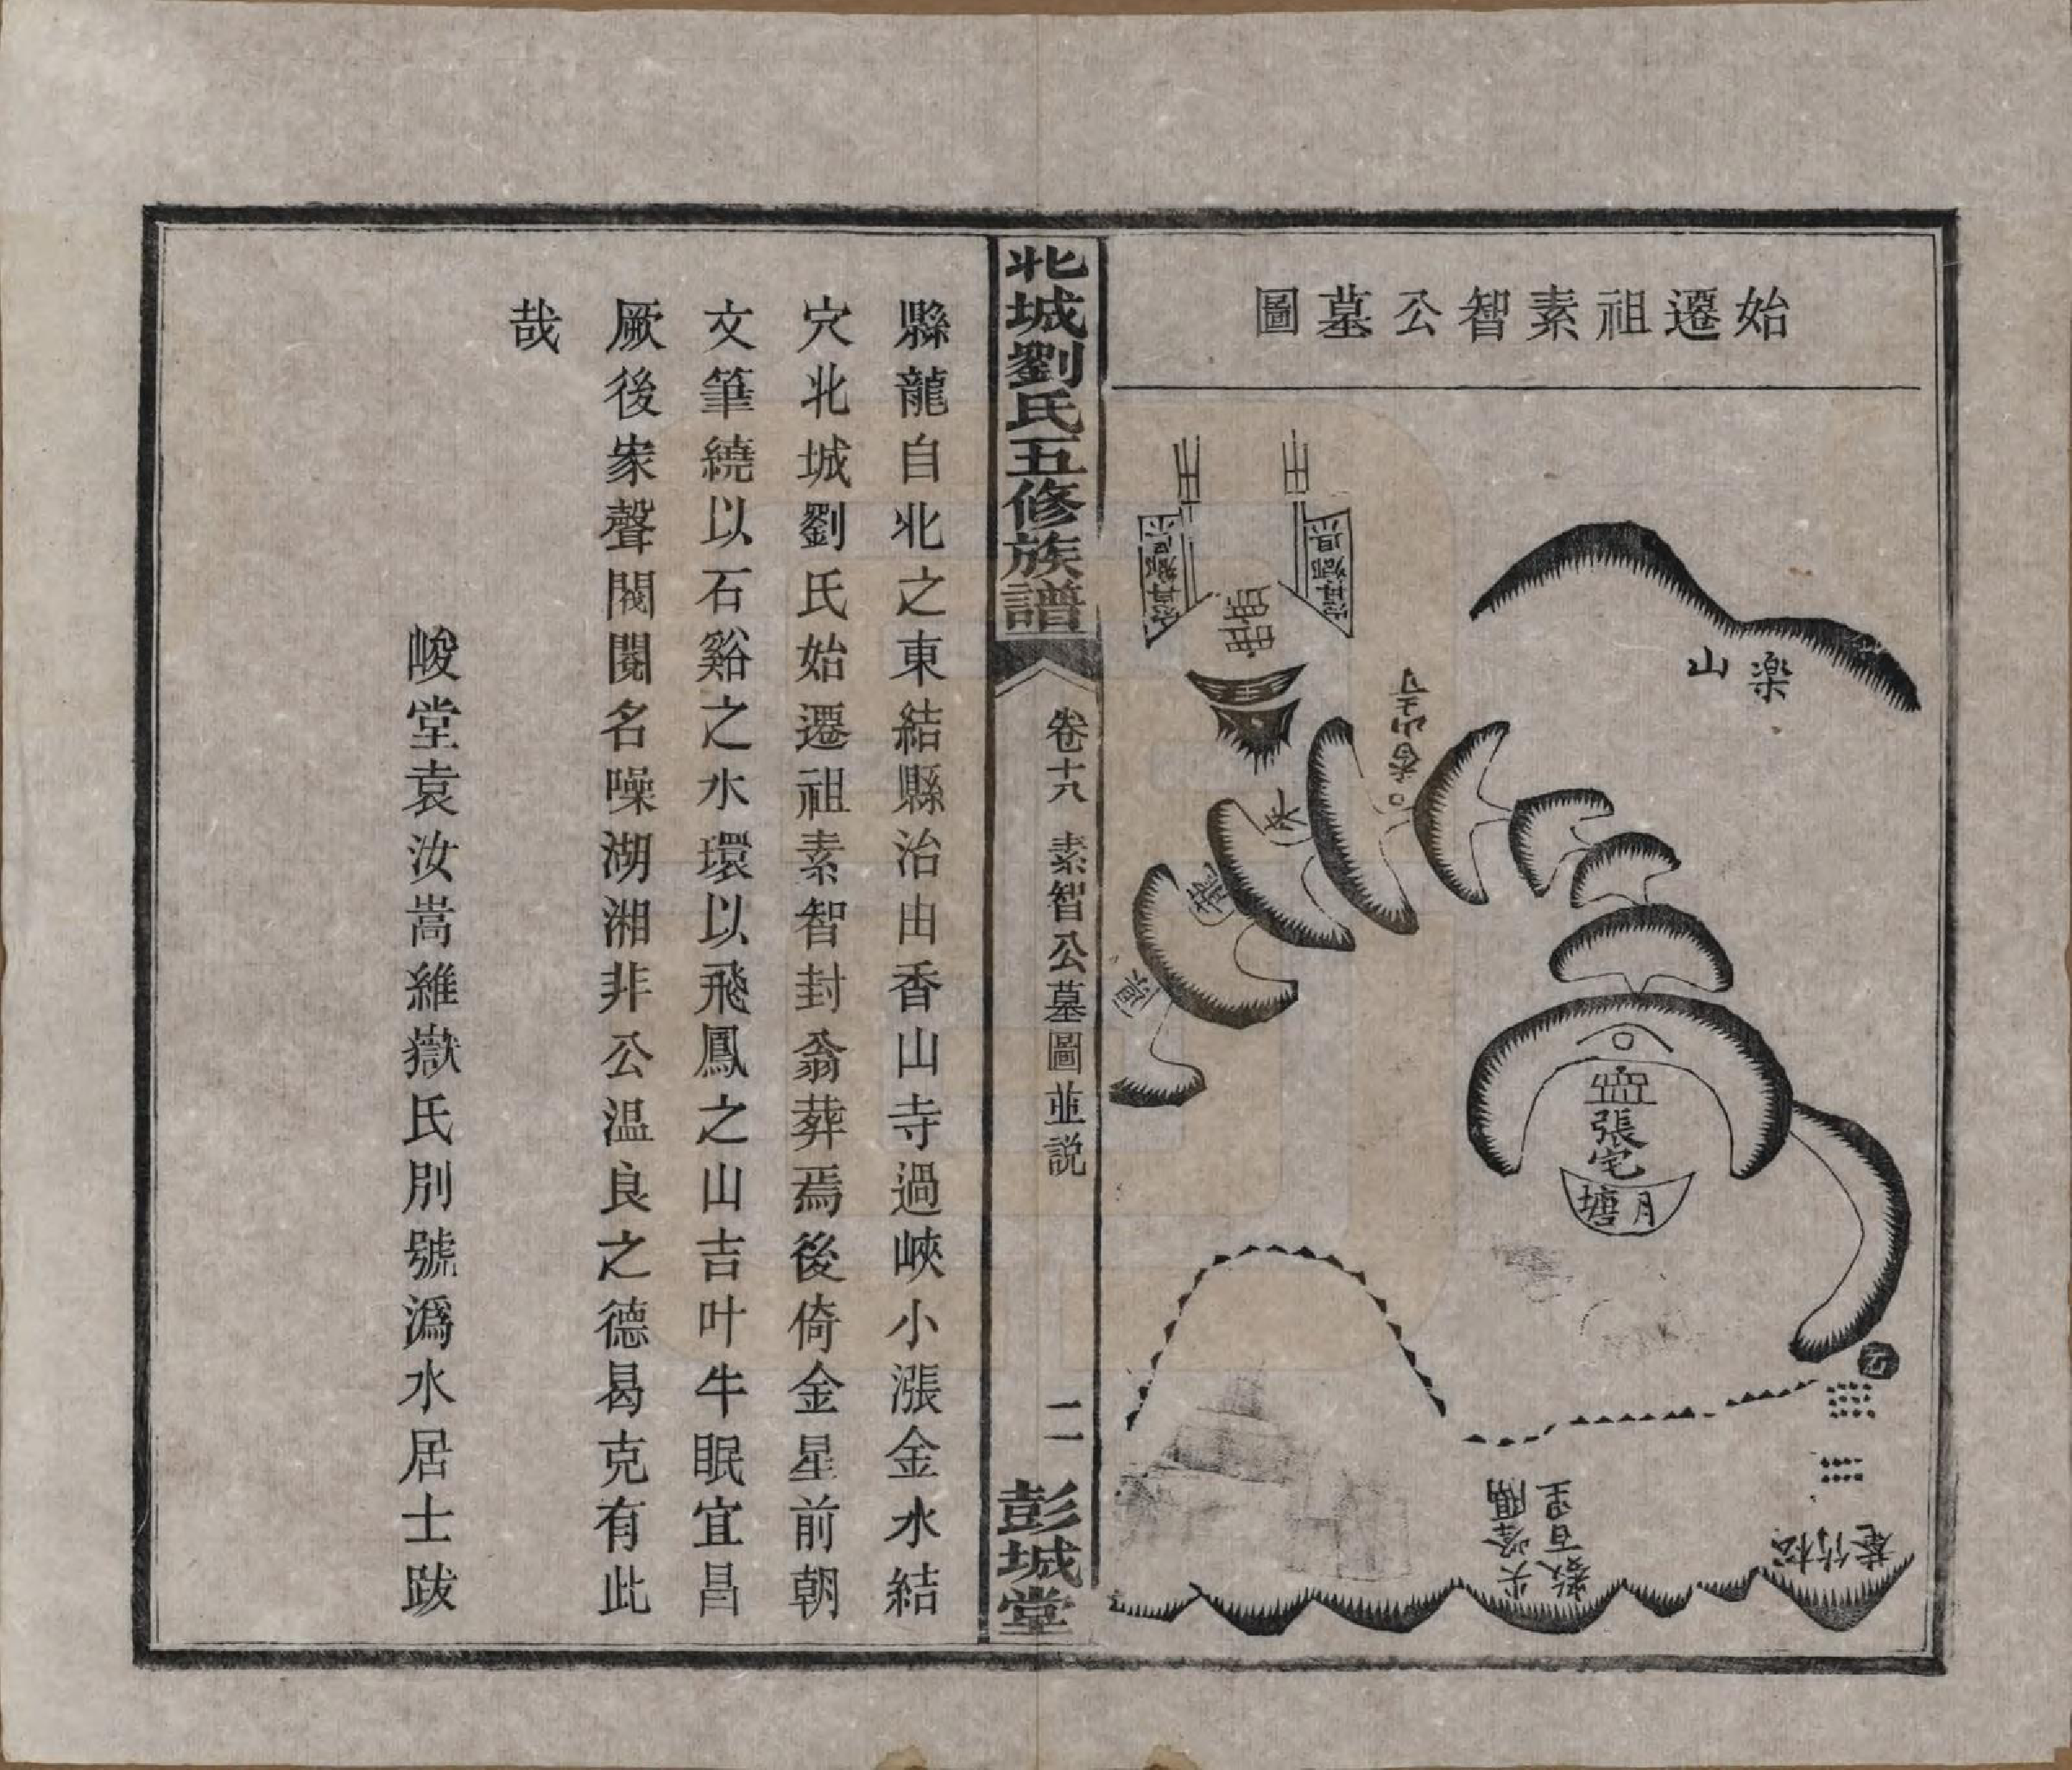 始遷祖素智公墓圖
樂山
香山寺
來
龍
過
張宅
月塘
數百里
北城劉氏五修族譜
卷十八
素智公墓圖並説
二
彭城堂
縣龍自北之東結縣治由香山寺過峽小漲金水結
穴北城劉氏始遷祖素智封翁葬焉後倚金星前朝
文筆繞以石谿之水環以飛鳳之山吉叶牛眠宜昌
厥後家聲閥閱名噪湖湘非公温良之德曷克有此
哉
峻堂袁汝嵩維嶽氏別號潙水居士跋